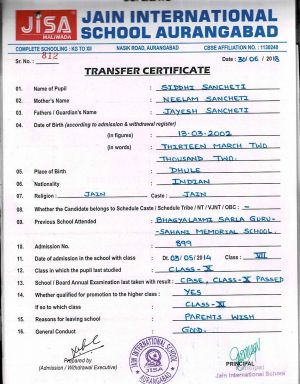 JISA
MALIWADA
JAIN INTERNATIONAL
SCHOOL AURANGABAD
COMPLETE SCHOOLING : KG TO XII NASIK ROAD, AURANGABAD CBSE AFFILIATION NO. : 1130248
Sr. No. : 812 Date : 30/06/2018
TRANSFER CERTIFICATE
01. Name of Pupil : SIDDHI SANCHETI
02. Mother's Name : NEELAM SANCHETI
03. Fathers / Guardian's Name : JAYESH SANCHETI
04. Date of Birth (according to admission & withdrawal register)
(in figures) : 13-03-2002
(in words) : THIRTEEN MARCH TWO
THOUSAND TWO.
05. Place of Birth : DHULE
06. Nationality : INDIAN
07. Religion : JAIN Caste : JAIN
08. Whether the Candidate belongs to Schedule Caste / Schedule Tribe / NT / VJNT / OBC : -
09. Previous School Attended : BHAGYALAXMI SARLA GURU-
SAHANI MEMORIAL SCHOOL.
10. Admission No. : 899
11. Date of admission in the school with class : Dt. 03/05/2014 Class : VII
12. Class in which the pupil last studied : CLASS-X
13. School / Board Annual Examination last taken with result : CBSE, CLASS-X PASSED
14. Whether qualified for promotion to the higher class : YES
If so to which class : CLASS-XI
15. Reasons for leaving school : PARENTS WISH
16. General Conduct : GOOD.
Prepared by
(Admission / Withdrawal Executive)
JAIN INTERNATIONAL SCHOOL
JISA
AURANGABAD
PRINCIPAL
Principal
Jain International School